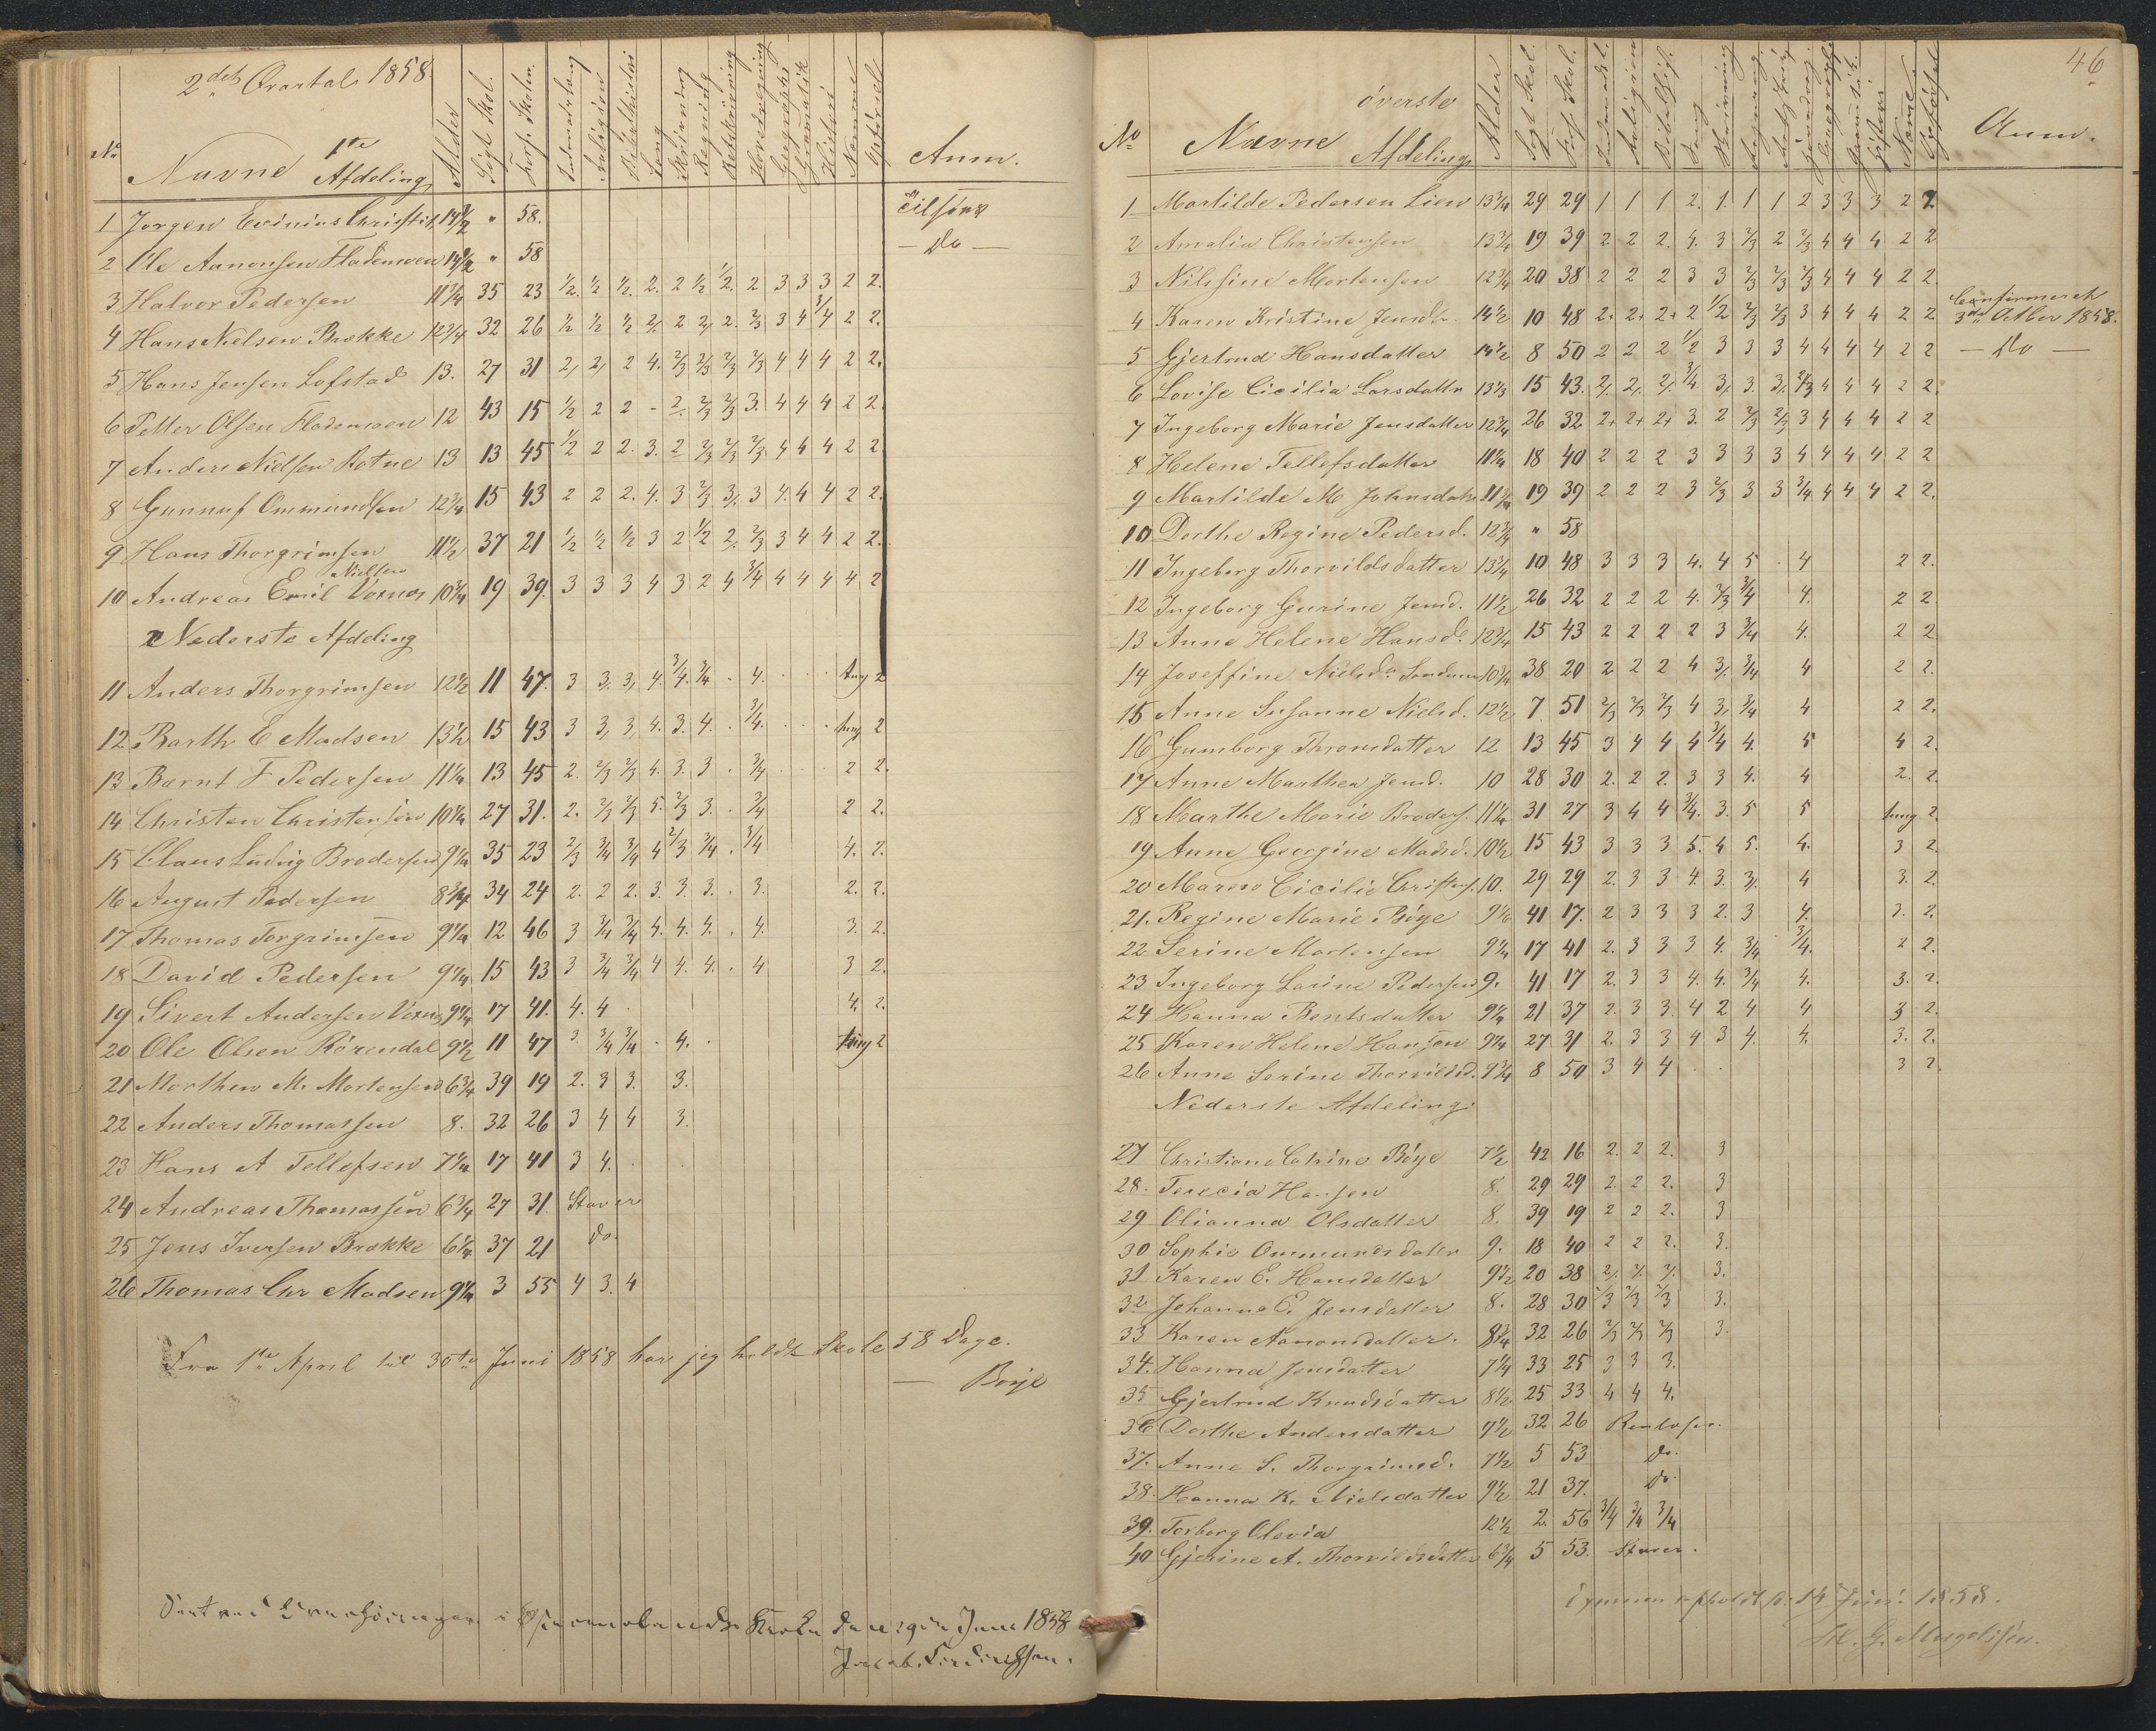 2det Qvartal 1858.
No Navne 1ste Afdeling Alder Søgt Skol. Fors. Skolen. Religion Sang Skrivning Regning Geografi Historie Anm.
1 Jørgen Evinius 14 1/2 " 58.
2 Ole Aanonsen Flademoen 14 1/2 " 58 — Do —
3 Halvor Pedersen 11 3/4 35 23 1/2. 1/2 1/2. 2. 2 1/2 1/2. 2 3 3 3 2 2.
4 Hans Nielsen Brække 12 3/4 32 26 1/2 1/2 1/2 2/. 2 2/. 2. 2/3 3 4 3/4 2 2.
5 Hans Jensen Lofstad 13. 27 31 2, 2, 2 4. 2/3 2/3 2/3 2/3 4 4 4 2 2.
6 Petter Olsen Flademoen 12 43 15 1/2 2 2 - 2. 2/3 2/3 3. 4 4 4 2 2
7 Anders Nielsen Botne 13 13 45 1/2 2 2. 3. 2 2/3 2/3 2/3. 4 4 4 2 2
8 Gunnuf Ommundsen 12 3/4 15 43 2 2 2. 4. 3 2/3 3/. 3 4. 4 4 2 2.
9 Hans Thorgrimsen 11 1/2 37 21 1/2 1/2 1/2 3 2 1/2 2/. 2/3 3 4 4 2 2.
Nielsen
10 Andreas Emil Voxnæs 10 3/4 19 39. 3 3 3 4 3 2 4 3/4 4 4 4 4 2
Nederste Afdeling
11 Anders Thorgrimsen 12 1/2 11 47. 3 3, 3, 4. 3/4. 3/4 . 4. . . . tung 2
12 Barth E Madsen 13 1/2 15 43 3 3, 3, 4. 3. 4. . 3/4. . . . tung 2
13 Barnt F Pedersen 11 1/4 13 45 2. 2/3 2/3 4. 3. 3 . 3/4 . . 2 2.
14 Christen Christensen 10 1/4 27 31. 2. 2/3 2/3 5. 2/3 3. . 3/4 2 2.
15 Claus Ludvig Brodersen 9 1/4 35 23 2/3 3/4 3/4 4 2/3 3/4 . 3/4 4. 2.
16 August Pedersen 8 3/4 34 24 2. 2 2. 3. 3 3. . 3. 2. 2.
17 Thomas Torgrimsen 9 1/4 12 46 3 3/4 3/4 4. 4. 4. . 4. 3. 2.
18 David Pedersen 9 1/4 15 43 3 3/4 3/4 4 4. 4. . 4 3 2.
19 Sivert Andersen 9 1/4 17 41. 4. 4 . 4. 2.
20 Ole Olsen Rørendal 9 1/2 11 47 3. 3/4 3/4 . 4. . tung 2
21 Morthen M. Mortensen 6 3/4 39 19 2. 3 3. 3.
22 Anders Thomassen 8. 32 26 3 4 4 3.
23 Hans A Tellefsen 7 1/4 17 41 3 4. .
24 Andreas Thomassen 6 3/4 27 31. Staver
25 Jens Iversen Brække 6 1/4 37 21 Do.
26 Thomas Chr Madsen 9 1/4 3 55 4 3. 4
Fra 1ste April til 30te Juni 1858 har jeg holdt Skole 58 Dage.
— Boije
Juni 1858
46
No Navne øverste Afdeling Alder Søgt Skol. Fors. Skol. Religion Sang Skrivning Regning Historie Anm.
1 Martilde Pedersen Lien 13 3/4 29 29 1 1 1 2. 1. 1 1 2 3 3 3 2 2
2 Amalia Christensen 13 3/4 19 39 2 2 2. 4. 3 2/3 2 2/3 4 4 4 2 2
3 Nilsine Mortensen 12 3/4 20 38 2 2 2 3 3 2/3 2/3 2/3 4 4 4 2 2.
4 Karen Kristine Jensdtr. 14 1/2 10 48 2+ 2+ 2+ 2 1/2 2/3 2/3 3 4 4 4 2 2 Confirmeret 3die Octber 1858.
5 Gjertrud Hansdatter 14 1/2 8 50 2 2 2 1/2 3 3 3 4 4 4 4 2 2 — Do —
6 Lovise Cicilia Larsdattr 13 1/3 15 43. 2/. 2/. 2/. 3/4. 3/. 3. 3/. 2/3 4 4 4 2 2.
7 Ingeborg Marie Jensdatter 12 3/4 26 32 2+ 2+ 2+ 3. 2 2/3 2/3 3 4 4 4 2 2
8 Helene Tellefsdatter 11 1/4 18 40 2 2 2 3 3 3 3 4 4 4 4 2 2
9 Martilde M Johnsdatr 11 1/4 19 39 2 2 2 3 2/3 3 3 3/4 4 4 4 2 2.
10 Dorthe Regine Pedersd. 12 3/4 " 58
11 Ingeborg Thorvildsdatter 13 1/4 10 48 3 3 3 4. 4 5 . 4 2 2.
12 Ingeborg Gurine Jensd. 11 1/2 26 32 2 2 2 4. 2/3 3/4 4. 2 2
13 Anne Helene Hansd. 12 3/4 15 43 2 2 2 2 3 3/4 4. 2 2
14 Joseffine Nielsd. 10 3/4 38 20 2 2 2 4 3/. 3/4 4 2 2.
15 Anne Susanne Nielsd. 12 1/2 7 51 2/3 2/3 2/3 4 3, 3/4 4 2 2.
16 Gumborg Thronsdatter 12 13 45 3 4 4 4 3/4 4. 5 4 2.
17 Anne Marthea Jensd. 10 28 30 2. 2 2. 3 3 4. 4 2. 2.
18 Marthe Marie Broders. 11 1/4 31 27 3 4 4 3/4. 3. 5 5 tung 2.
19 Anne Georgine Madsd. 10 1/2 15 43 3 3 3 5. 4 5. 4. 3 2.
20 Maren Cicilie Christens. 10. 29 29 2. 3 3 4. 3. 3/. 4 3. 2.
21. Regine Marie Böye 9 1/2 41 17. 2 3 3 3 2. 3 4. 3. 2.
22 Serine Mortensen 9 1/4 17 41 2. 3 3 3 4. 3/4 3/4. 2 2.
23 Ingeborg Larine Pedersen 9. 41 17 2. 3 3 4. 4. 3/4 4. 3. 2.
24 Hanna Bentsdatter 9 1/4 21 37 2. 3 3. 4 2 4 4 3 2.
25 Karen Helene Hansen 9 1/4 27 31 2. 3 3 4 3 4. 4. 3. 2.
26 Anne Serine Thorvildsd. 9 3/4 8 50 3 4 4 . . 3 2.
Nederste Afdeling.
27 Christiane Catrine Böye 7 1/2 42 16 2. 2 2. 3
28. Terecia Hansen 8. 29 29 2. 2 2. 3
29 Olianna Olsdatter 8. 39 19 2 2 2. 3
30 Sophie Ommundsdattr 9. 18 40 2 2 2. 3.
31 Karen E. Hansdatter 9 1/2 20 38 2/. 2/. 2/. 3.
32 Johanne E. Jensdatter 8. 28 30 2/3 2/3 2/3 3.
33 Karen Aanonsdatter. 8 3/4 32 26 2/3 2/3 2/3 3.
34. Hanna Jensdatter 7 1/4 33 25 3 3 3.
35 Gjertrud Knudsdatter 8 1/2 25 33 4 4 4.
36 Dorthe Andersdatter 7 1/2 32 26
37. Anne S. Thorgrimsd. 7 1/2 5 53 Do.
38. Hanna K. Nielsdatter 9 1/2 21 37. Do.
39. Torborg Olevia 12 1/2 2. 56 3/4 3/4 3/4
40 Gjerine A. Thorvildsdatter 6 3/4 5 53. Staver.
14 Juni 1858.